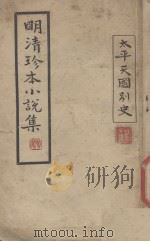 太平天國別史
明清珍本小說集